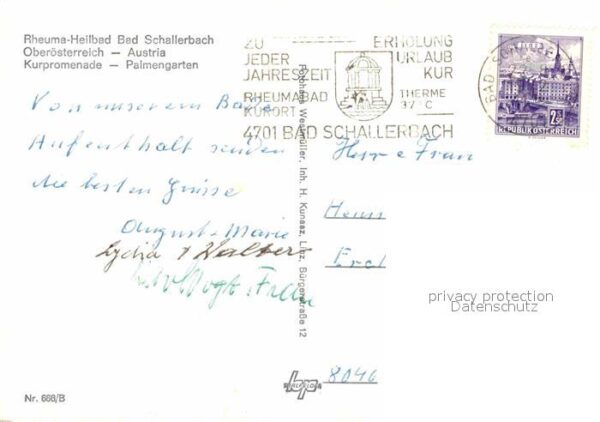 Rheuma-Heilbad Bad Schallerbach
Oberösterreich — Austria
Kurpromenade — Palmengarten
ZU
JEDER
JAHRESZEIT
RHEUMABAD
KURORT
ERHOLUNG
URLAUB
KUR
THERME
37°C
4701 BAD SCHALLERBACH
BAD SCHALLERBACH
2.50
REPUBLIK ÖSTERREICH
Von unserem Bade
Aufenthalt senden
die besten Grüsse
August - Marie
Lydia + Walter
Fotohaus Westmüller, Inh. H. Kunasz, Linz, Bürgerstraße 12
Herr e Frau
privacy protection
Datenschutz
8046
bp
Nr. 668/B